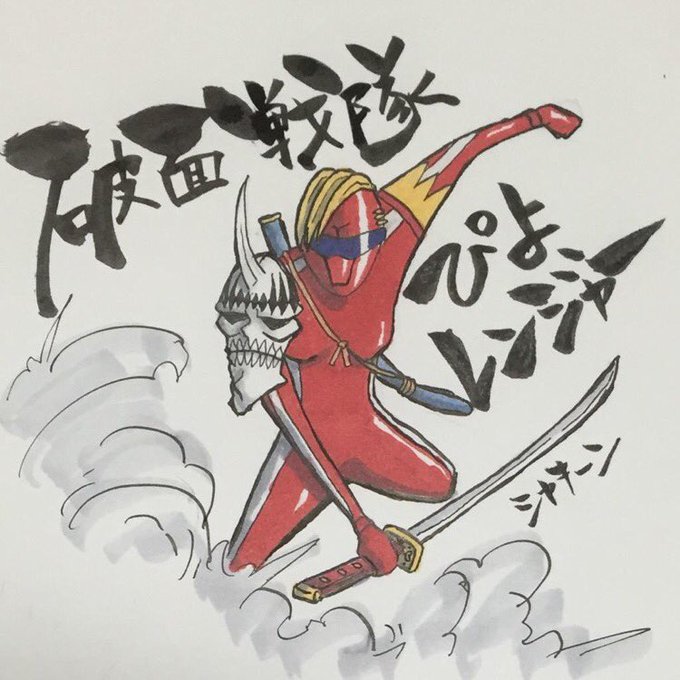 破面戦隊
ぴよ
レンジャー
シャキーン